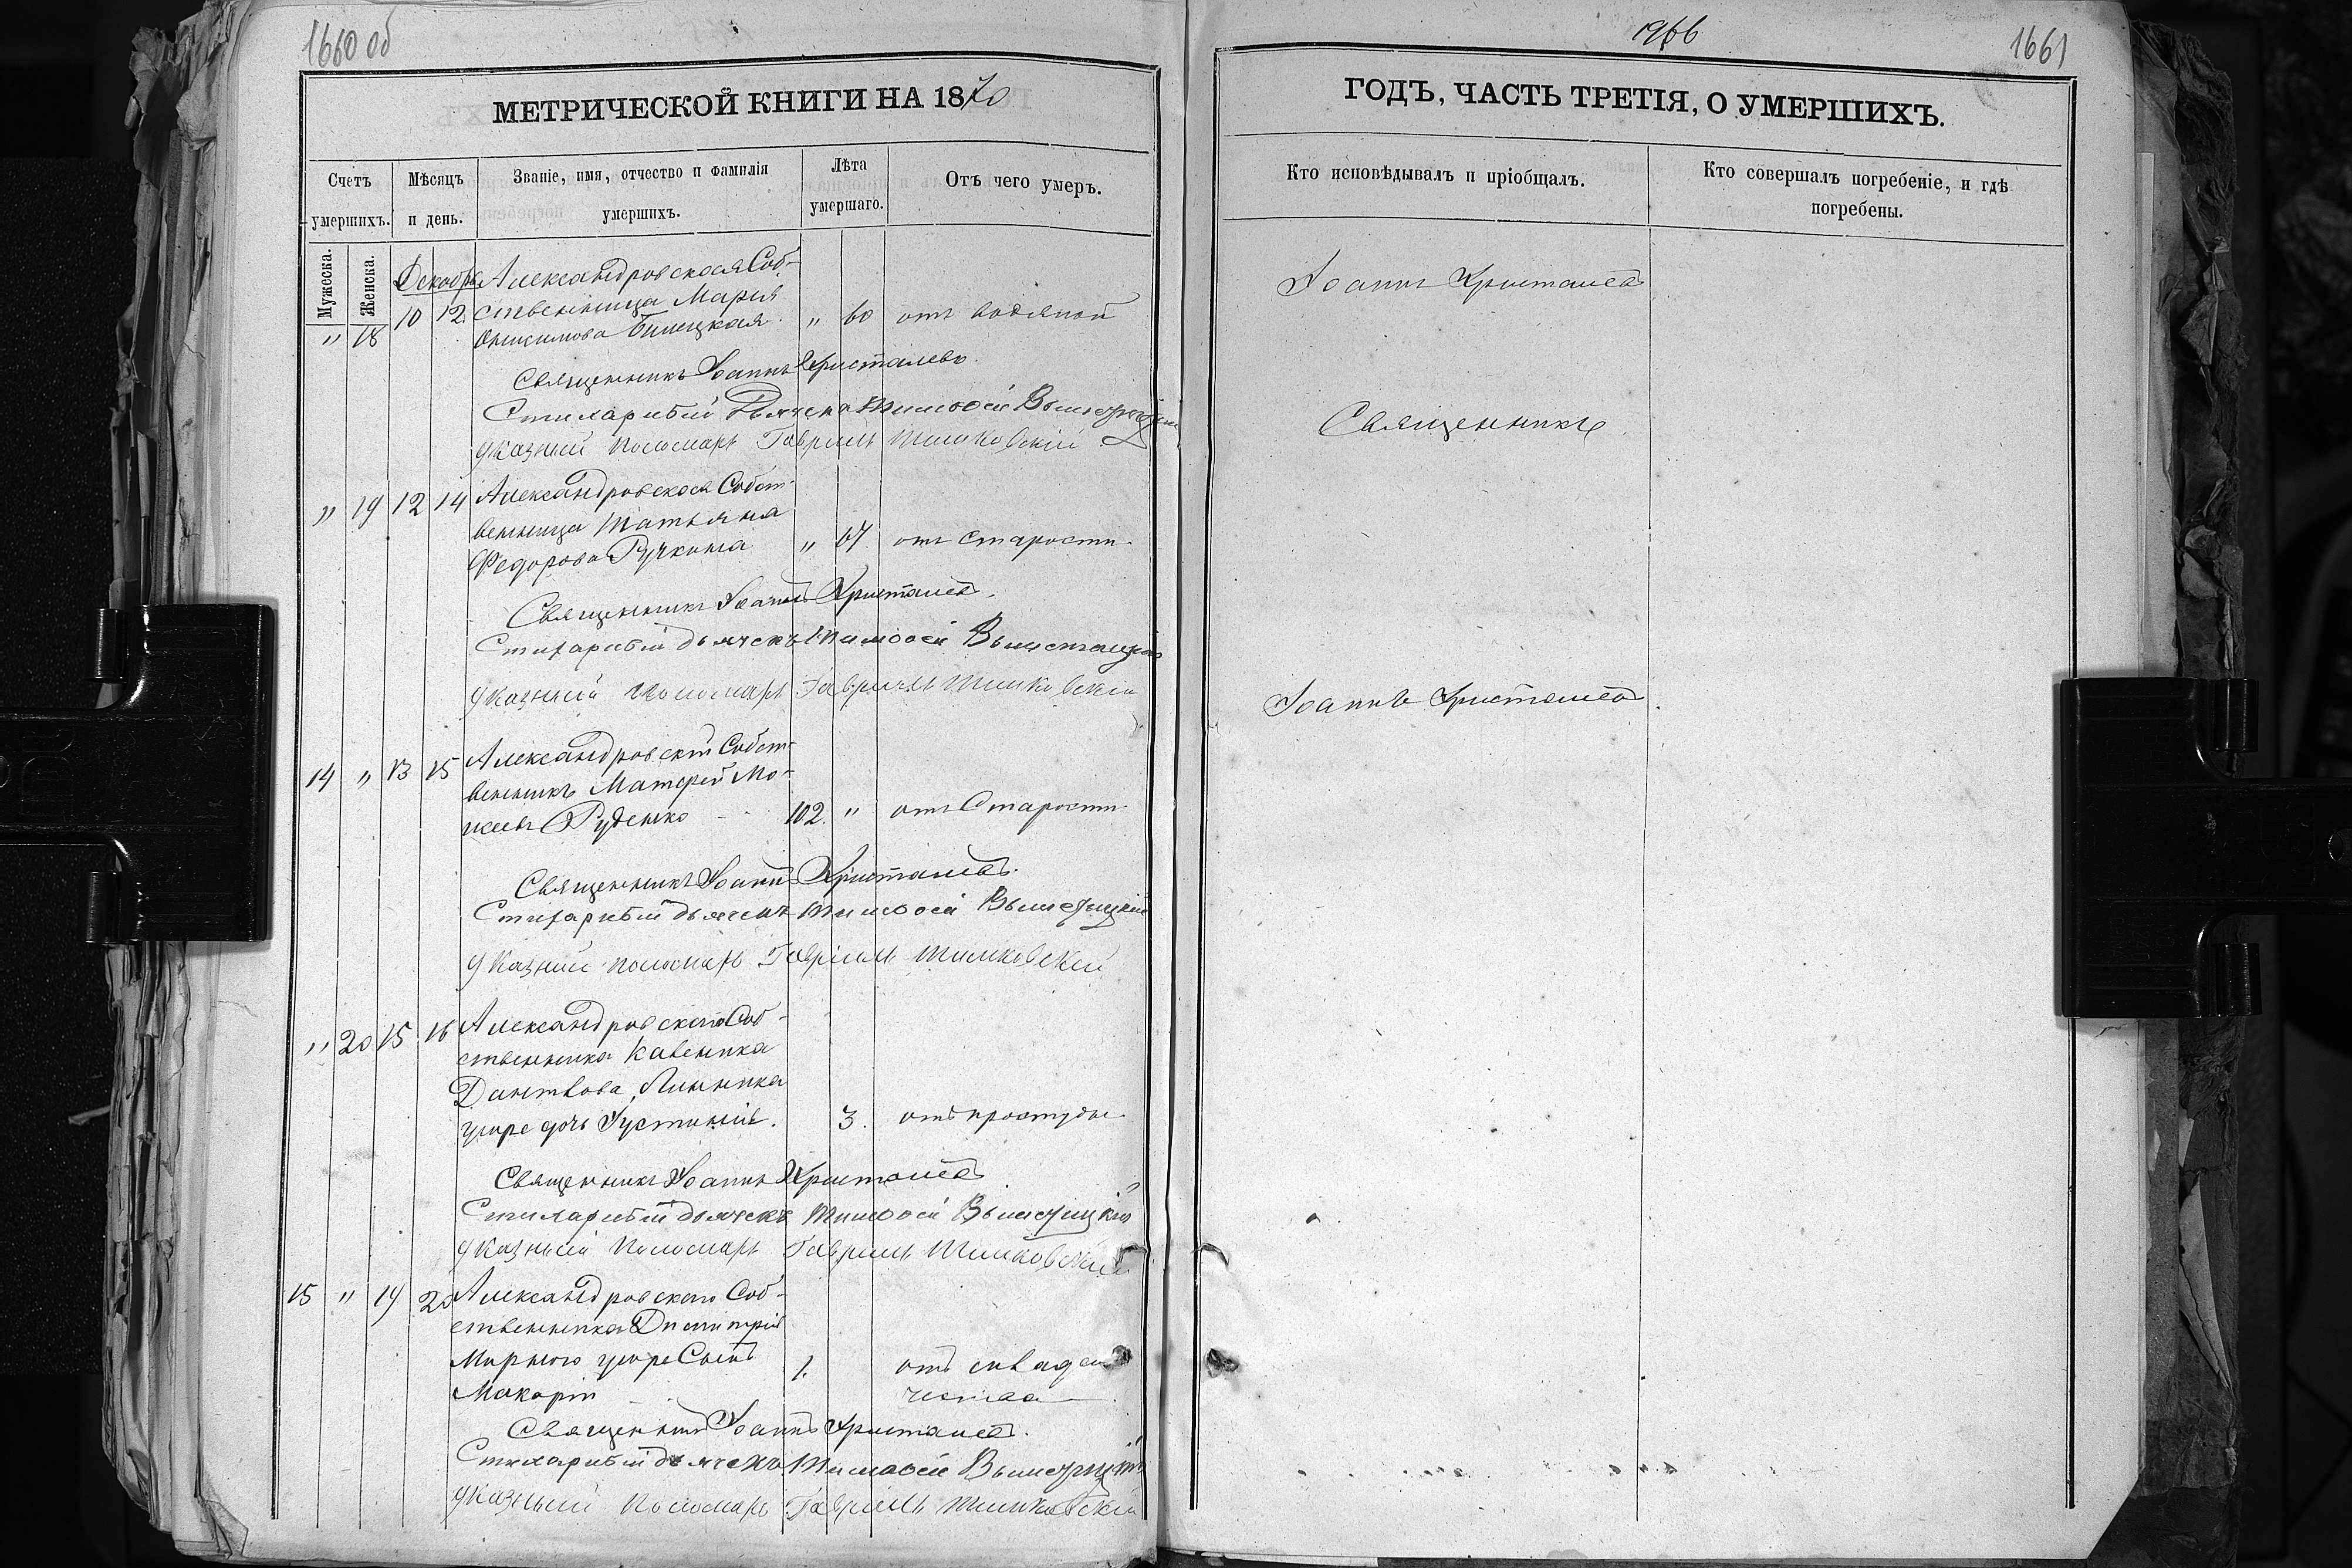 1660 об
МЕТРИЧЕСКОЙ КНИГИ НА 1870
Счетъ умершихъ.
Мѣсяцъ и день.
Званіе, имя, отчество и фамилія умершихъ.
Лѣта умершаго.
Отъ чего умеръ.
Мужеска.
Женска.
Декабрь
Александровская Соб-
" 18 10 12 ственница Марія
Онисимова " 60 отъ водяной
Священникъ Іоаннъ Христалевъ.
Стихарный Дьячекъ Тимофей
Указный Пономарь Гавріилъ Тимковскій
" 19 12 14 Александровская Собст-
венница Татьяна
Федорова " 67 отъ Старости
Священникъ Іоаннъ Христалевъ.
Стихарный дьячекъ Тимофей
Указный Пономарь Гавріилъ Тимковскій
14 " 13 15 Александровскій Собст-
венникъ Матфей Мо-
Руденко 102. " отъ Старости
Священникъ Іоаннъ Христалевъ.
Стихарный дьячекъ Тимофей
Указный пономарь Гавріилъ Тимковскій
" 20 15 16 Александровского Соб-
ственника
Линника
дочь Іустинія. 3. отъ простуды
Священникъ Іоаннъ Христалевъ
Стихарный дьячекъ Тимофей
Указный Пономарь Гавріилъ Тимковскій
15 " 19 20 Александровского Соб-
ственника Димитрія
Мирного Сынъ 1. отъ
Макарій
Священникъ Іоаннъ Христалевъ.
Стихарный дьячекъ Тимофей
Указный Пономарь Гавріилъ Тимковскій
1966
1661
ГОДЪ, ЧАСТЬ ТРЕТІЯ, О УМЕРШИХЪ.
Кто исповѣдывалъ и пріобщалъ.
Кто совершалъ погребеніе, и гдѣ погребены.
Іоаннъ Христалевъ
Священникъ
Іоаннъ Христалевъ.